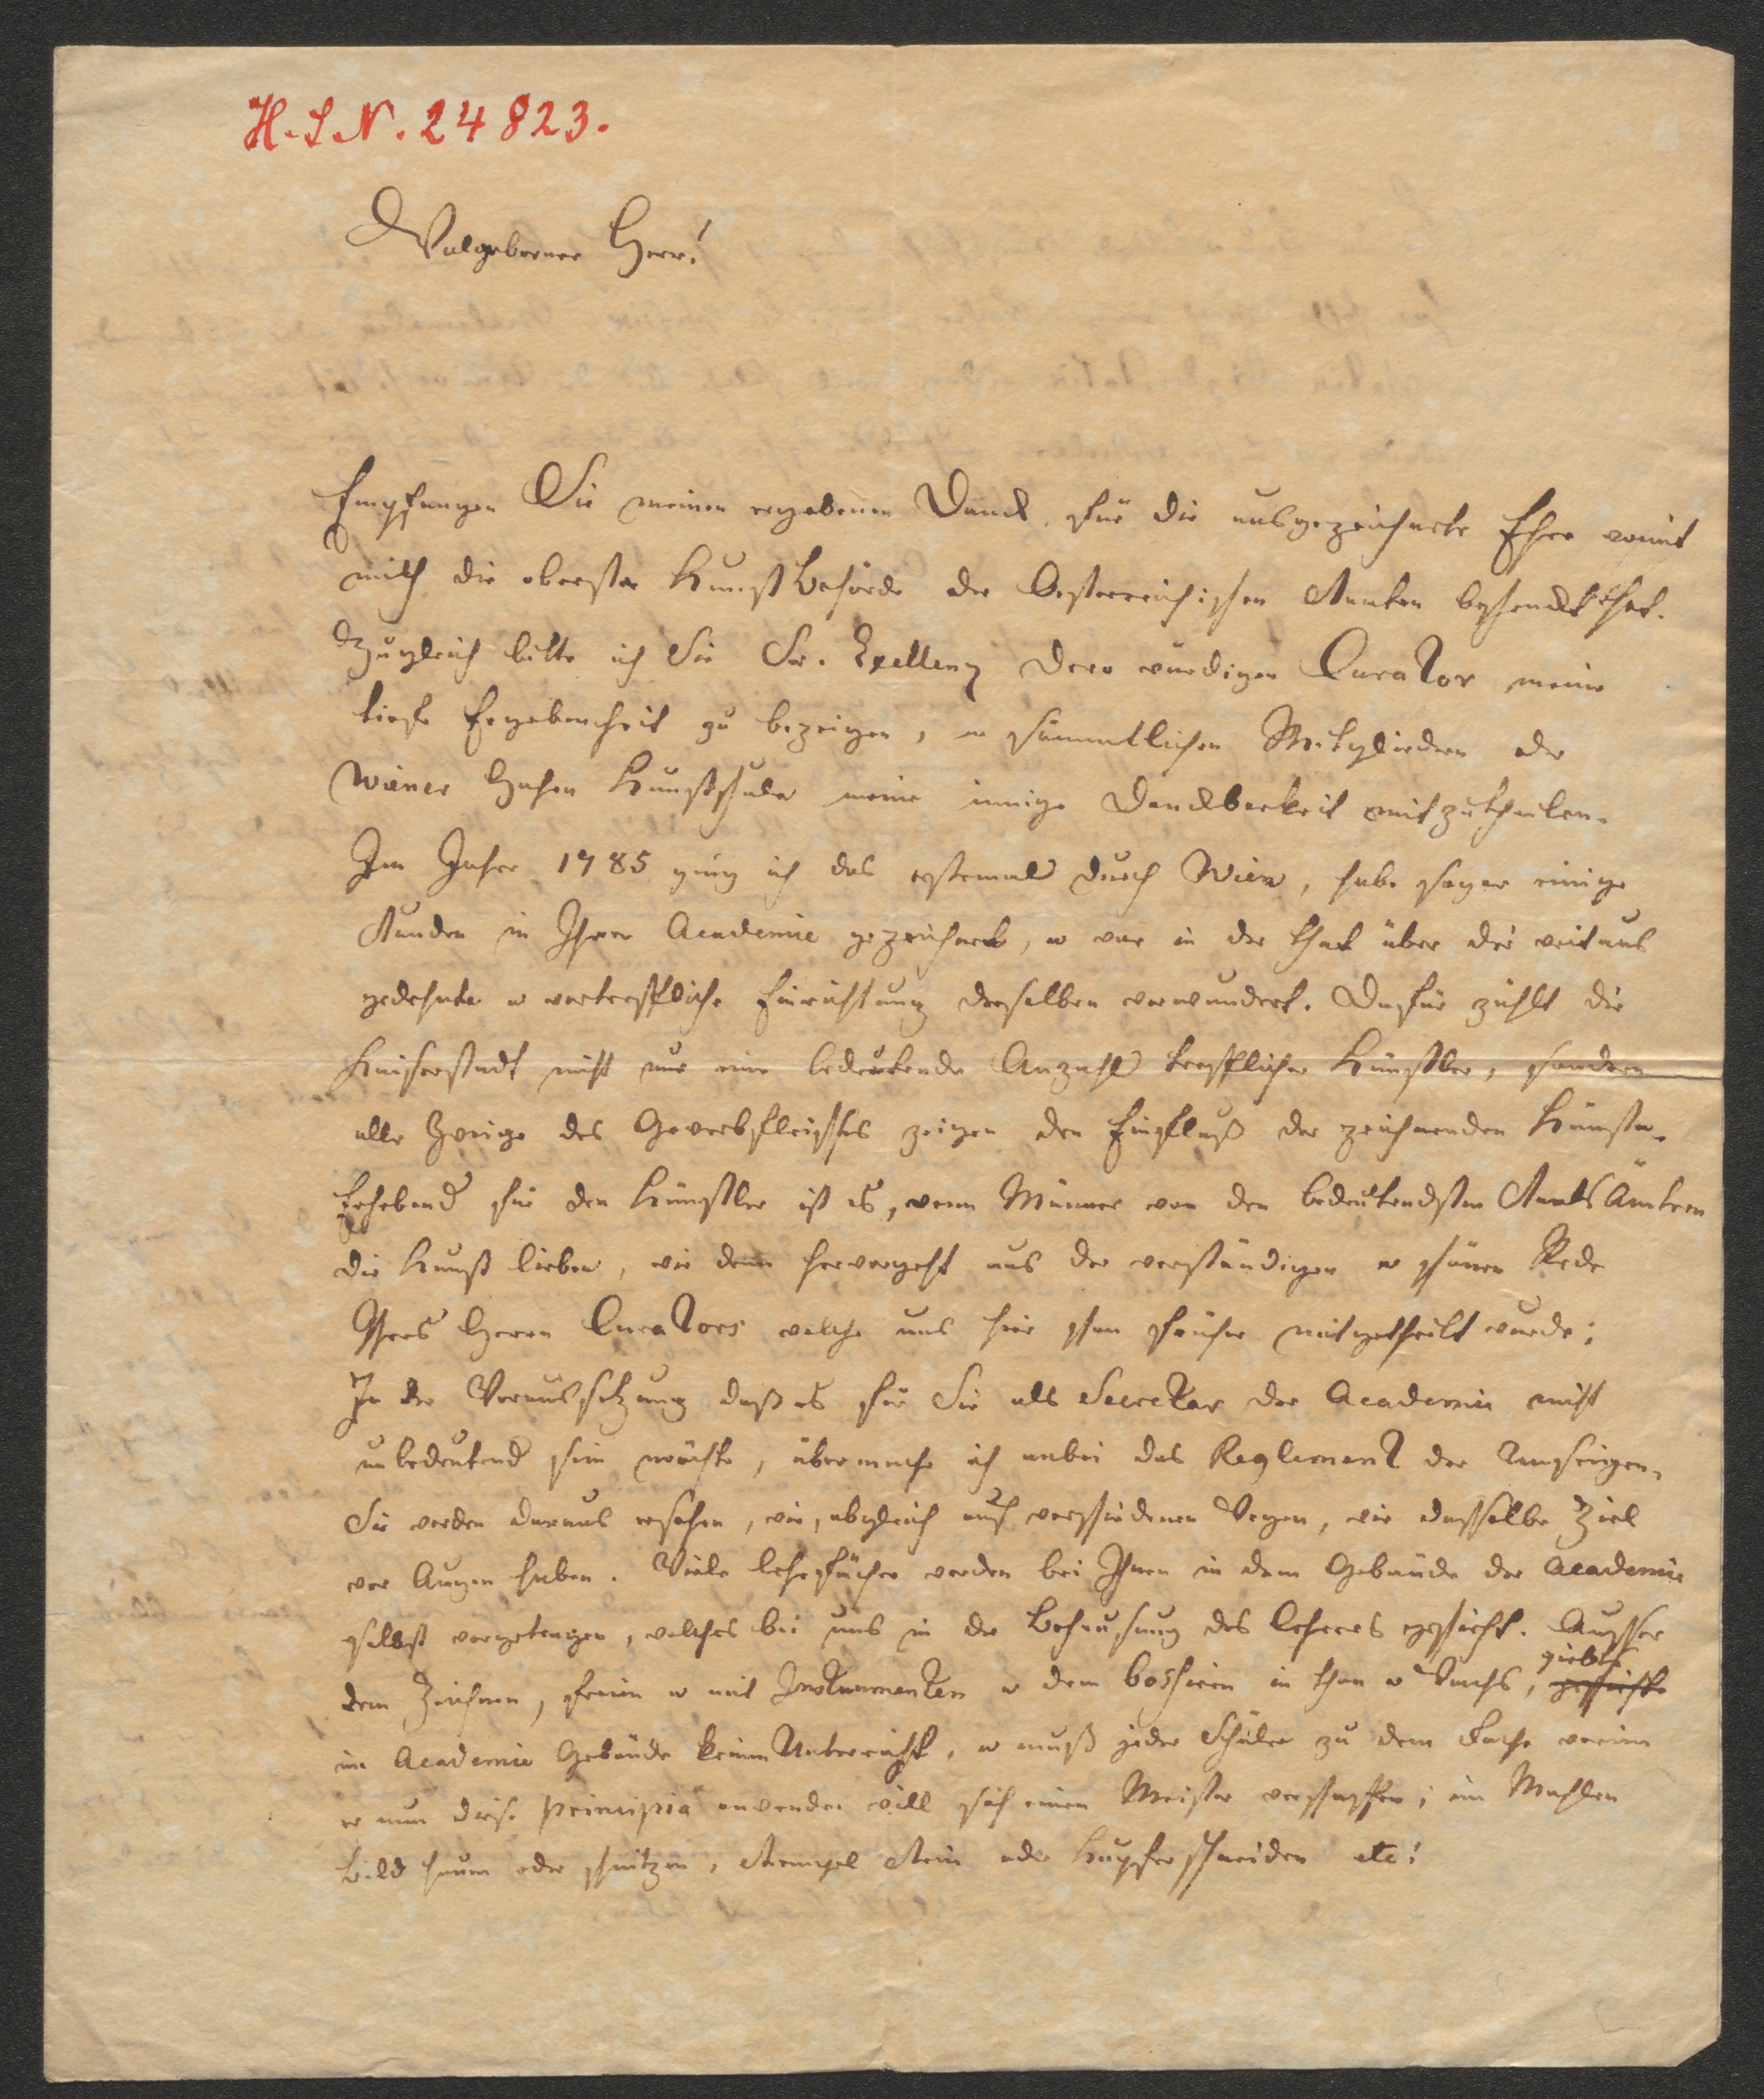 H.I.N. 24823.
Wolgeborner Herr!
Empfangen Sie meinen ergebenen Danck, für die ausgezeichnete Ehre womit
mich die oberste Kunst Behörde der Oesterreichischen Staaten beschenckt hat.
Zugleich bitte ich Sie Sr. Exellenz Dero würdigen Curator meine
tiefe Ergebenheit zu bezeigen, u sämmtlichen Mitgliedern der
Wiener Hohen Kunstschule meine innige Danckbarkeit mitzutheilen.
Im Jahre 1785 ging ich das erstemal durch Wien, habe sogar einige
Stunden in Ihrer Academie gezeichnet, u war in der That über die weitaus
gedehnte u vortreffliche Einrichtung derselben verwundert. Dafür zählt die
Kaiserstadt nicht nur eine bedeutende Anzahl trefflicher Künstler, sondern
alle Zweige des Gewerbfleisses zeigen den Einfluß der zeichnenden Künste.
Erhebend für den Künstler ist es, wenn Männer von den bedeutendsten Staats Ämtern
die Kunst lieben, wie denn hervorgeht aus der verständigen u schönen Rede
Ihres Herrn Curators welche uns hier schon früher mitgetheilt wurde;
In der Voraussetzung daß es für Sie als Secretar der Academie nicht
unbedeutend sein möchte, übermache ich anbei das Reglement der unserigen.
Sie werden daraus ersehen, wie, obgleich auf verschiedenen Wegen, wir dasselbe Ziel
vor Augen haben. Viele Lehrfächer werden bei Ihnen in dem Gebäude der Academie
selbst vorgetragen, welches bei uns in der Behausung des Lehrers geschieht. Ausser
dem Zeichnen, freien u mit Instrumenten u dem bossiren in thon u Wachs, giebts
im Academie Gebäude keinen Unterricht, u muß jeder Schüler zu dem Fache worinn
er nun diese principia anwenden will sich einen Meister verschaffen; im Mahlen
bild hauen oder schnitzen, Stempel Stein oder Kupferschneiden etc: